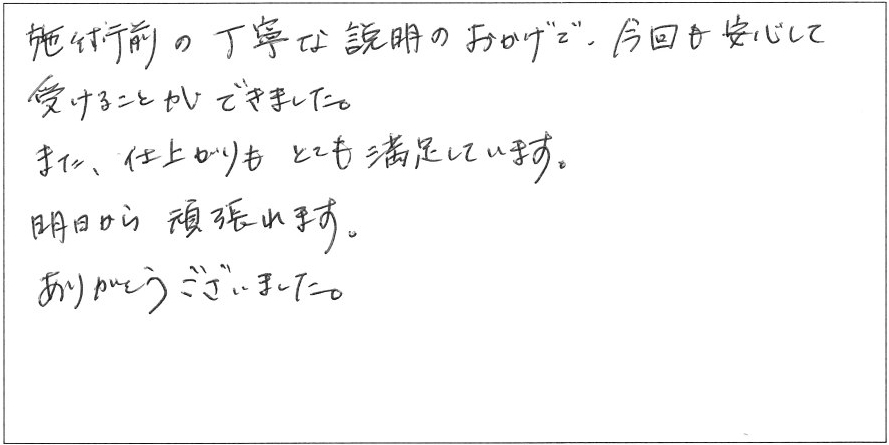 施術前の丁寧な説明のおかげで、今回も安心して
受けることができました。
また、仕上がりもとても満足しています。
明日から頑張れます。
ありがとうございました。